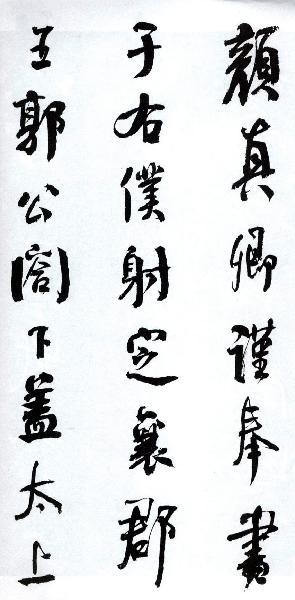 顔真卿謹奉書
于右僕射定襄郡
王郭公閤下蓋太上